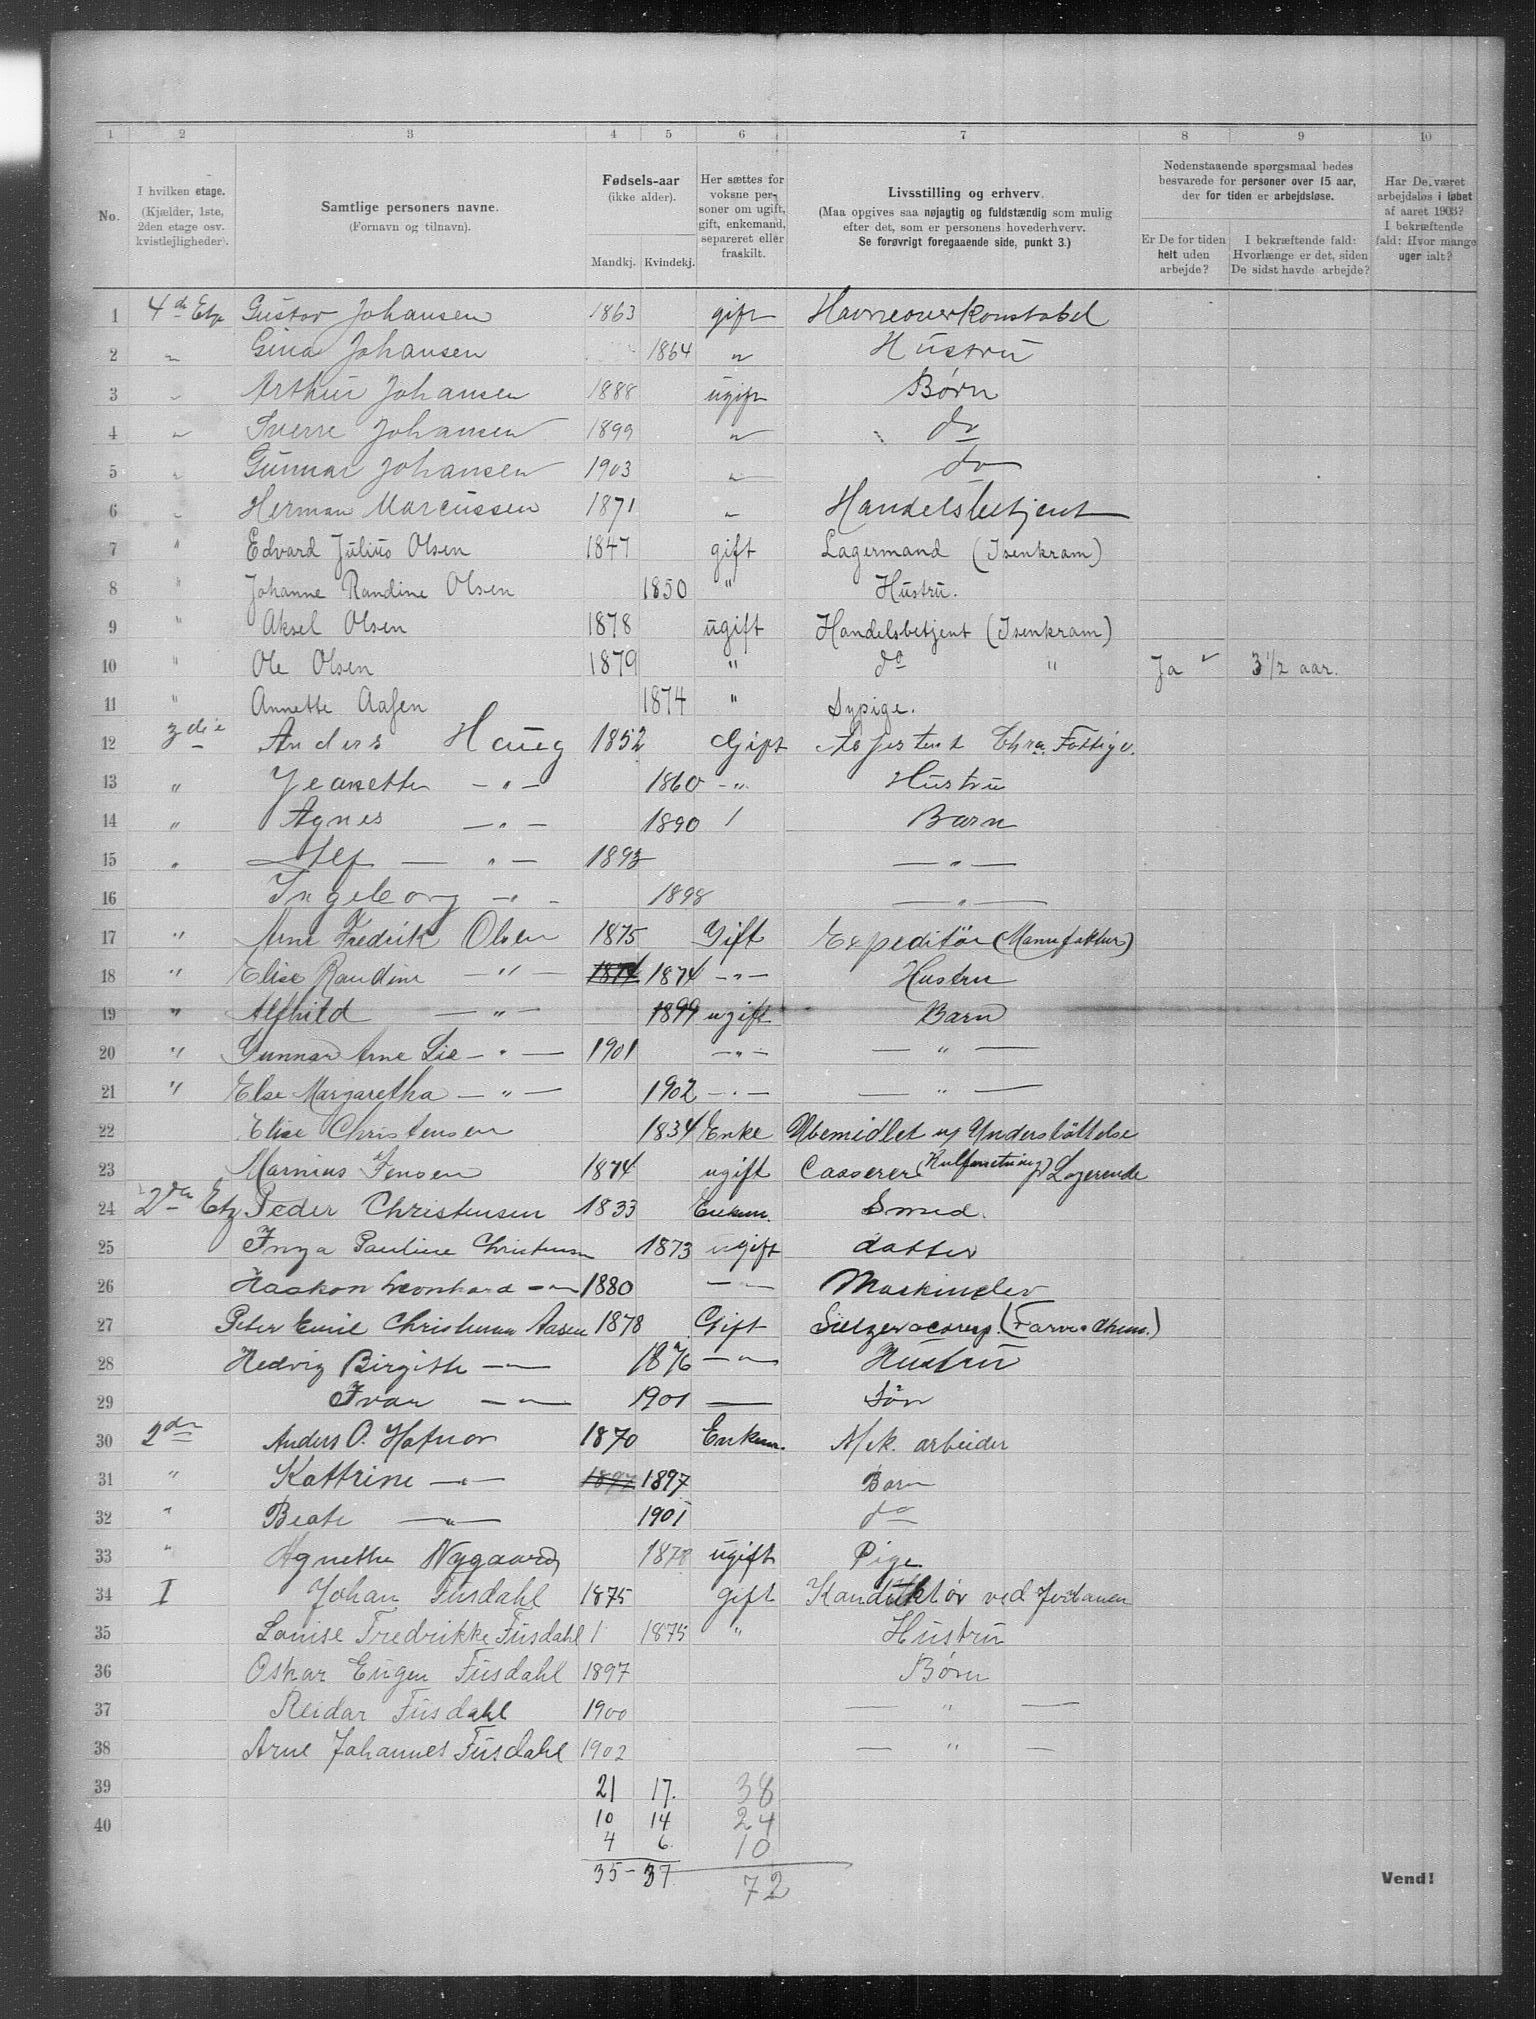 1 2 3 4 5 6 7 8 9 10
No.
I hvilken etage.
(Kjælder, 1ste,
2den etage osv.
kvistlejligheder).
Samtlige personers navne.
(Fornavn og tilnavn).
Fødsels-aar
(ikke alder).
Mandkj. Kvindekj.
Her sættes for
voksne per-
soner om ugift,
gift, enkemand,
separeret eller
fraskilt.
Livsstilling og erhverv.
(Maa opgives saa nøjagtig og fuldstændig som mulig
efter det, som er personens hovederhverv.
Se forøvrigt foregaaende side, punkt 3.)
Nedenstaaende spørgsmaal bedes
besvarede for personer over 15 aar,
der for tiden er arbejdsløse.
Er De for tiden
helt uden
arbejde?
I bekræftende fald:
Hvorlænge er det, siden
De sidst havde arbejde?
Har De været
arbejdsløs i løbet
af aaret 1903?
I bekræftende
fald: Hvor mange
uger ialt?
1 4de Etg Gustav Johansen 1863 gift Havneoverkonstabel
2 " Gina Johansen 1864 " Hustru
3 " Arthur Johansen 1888 ugift Børn
4 " Sverre Johansen 1899 " do
5 " Gunnar Johansen 1903 " do
6 " Herman Marcussen 1871 " Handelsbetjent
7 " Edvard Julius Olsen 1847 gift Lagermand (Isenkram)
8 " Johanne Randine Olsen 1850 " Hustru.
9 " Aksel Olsen 1878 ugift Handelsbetjent (Isenkram)
10 " Ole Olsen 1879 " do " Ja 3 1/2 aar.
11 " Annette Aasen 1874 " Sypige.
12 3die Anders Haug 1852 Gift Chra. Fattigv.
13 " Jeanette — " — 1860 — " Hustru
14 " Agnes — " — 1890 / Barn
15 " Alf — " — 1893 — " —
16 Ingeborg — " — 1898 — " —
17 " Arne Fredrik Olsen 1875 Gift Expeditør (Manufaktur)
18 " Elise Randine — " — 1874 1874 — " — Hustru
19 " Alfhild — " — 1899 ugift Barn
20 " Gunnar Arne Lie — " — 1901 — " — — " —
21 " Else Margaretha — " — 1902 — " — — " —
22 Elise Christensen 1834 Enke Ubemidlet Understøttelse
23 Marnius Jensen 1874 ugift Casserer (Kulforretning) Logerende
24 2den Etg Peder Christensen 1833 Enkem. Smed.
25 Inga Pauline Christensen 1873 ugift datter
26 Haakon Leonhard — " — 1880 — " — Maskinelev
27 Peter Emil Christensen Aasen 1878 Gift
28 Hedvig Birgitte — " — 1876 — " — Hustru
29 Ivar — " — 1901 — Søn
30 2den Anders O. Hofnor 1870 Enkem. M/k. arbeider
31 " Kattrine — " — 1897 1897 Barn
32 " Beate — " — 1901 do
33 " Agnethe Nygaard 1878 ugift Pige
34 I Johan Fusdahl 1875 gift Konduktør ved Jerbanen
35 Louise Fredrikke Fusdahl 1 1875 " Hustru
36 Oskar Eugen Fusdahl 1897 Børn
37 Reidar Fusdahl 1900 — " —
38 Arne Johannes Fusdahl 1902 — " —
39 21 17. 38
40 10 14 24
4 6. 10
35 - 37 72
Vend!